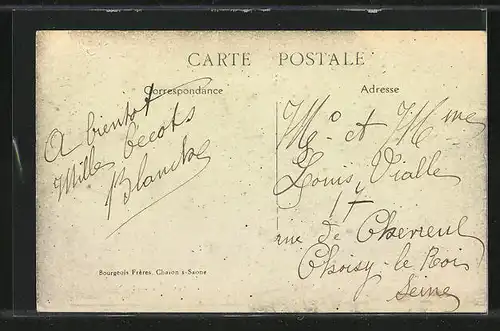 CARTE POSTALE
Correspondance
A bientot
Mille becots
Blanche
Bourgeois Frères, Chalon s-Saone
Adresse
Mr et Mme
Louis Vialle
17
rue de Chevreul
Choisy-le Roi
Seine